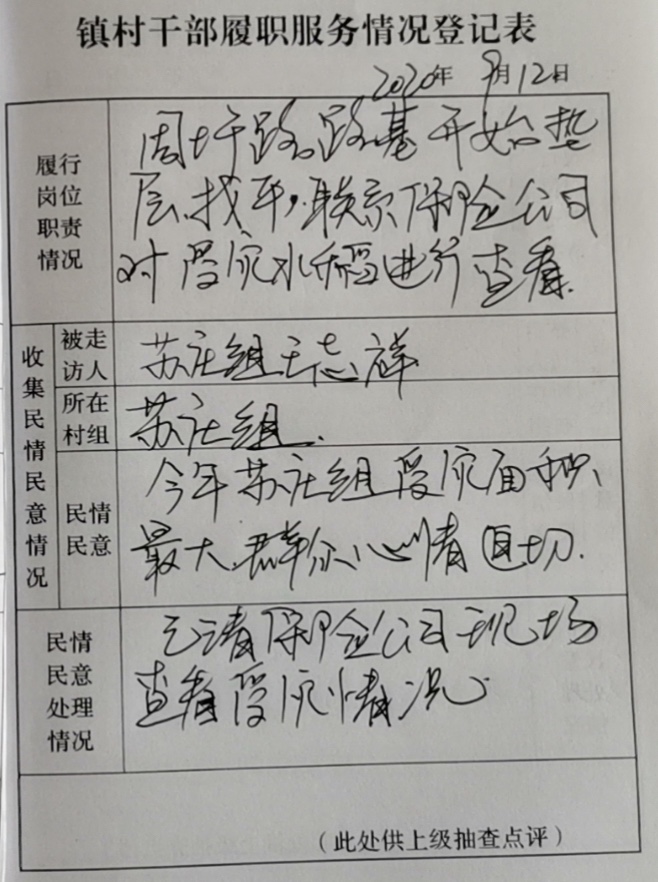 镇村干部履职服务情况登记表
2020年 9月12日
履行
岗位
职责
情况
周圩路路基开始垫
层找平,联系保险公司
对受灾水稻进行查看.
收集民情民意情况
被走
访人
苏庄组王志祥
所在
村组
苏庄组.
民情
民意
今年苏庄组受灾面积
最大.群众心情迫切.
民情
民意
处理
情况
已请保险公司现场
查看受灾情况
(此处供上级抽查点评)